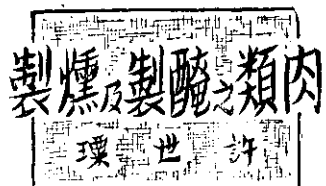 肉類之醃製及燻製
許世瑮